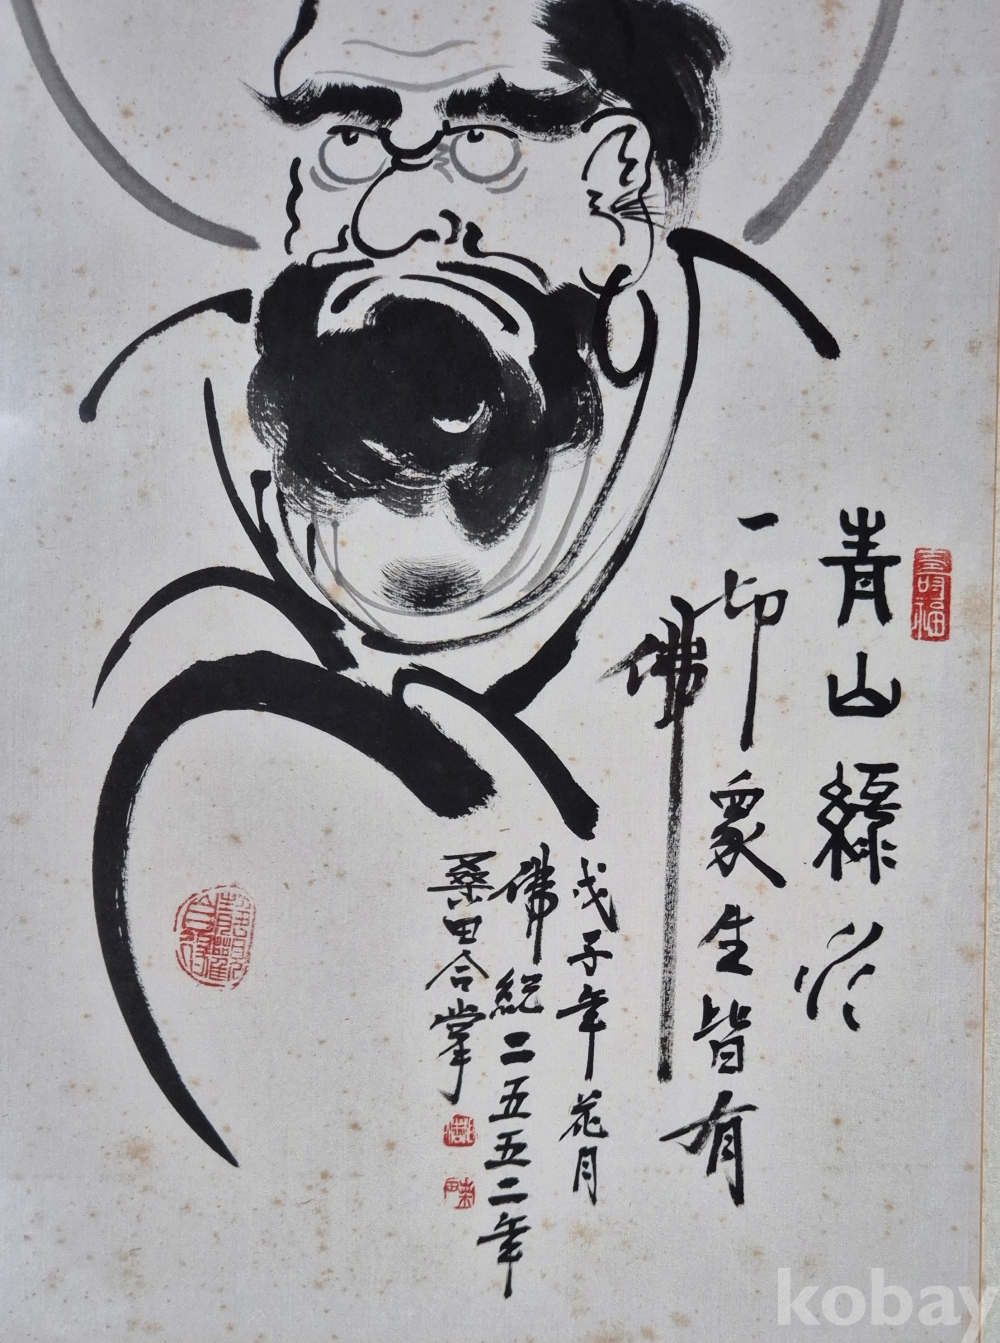 壽福
青山綠水
一切衆生皆有
佛
戊子年花月
佛紀二五五二年
桑田合掌
kobay